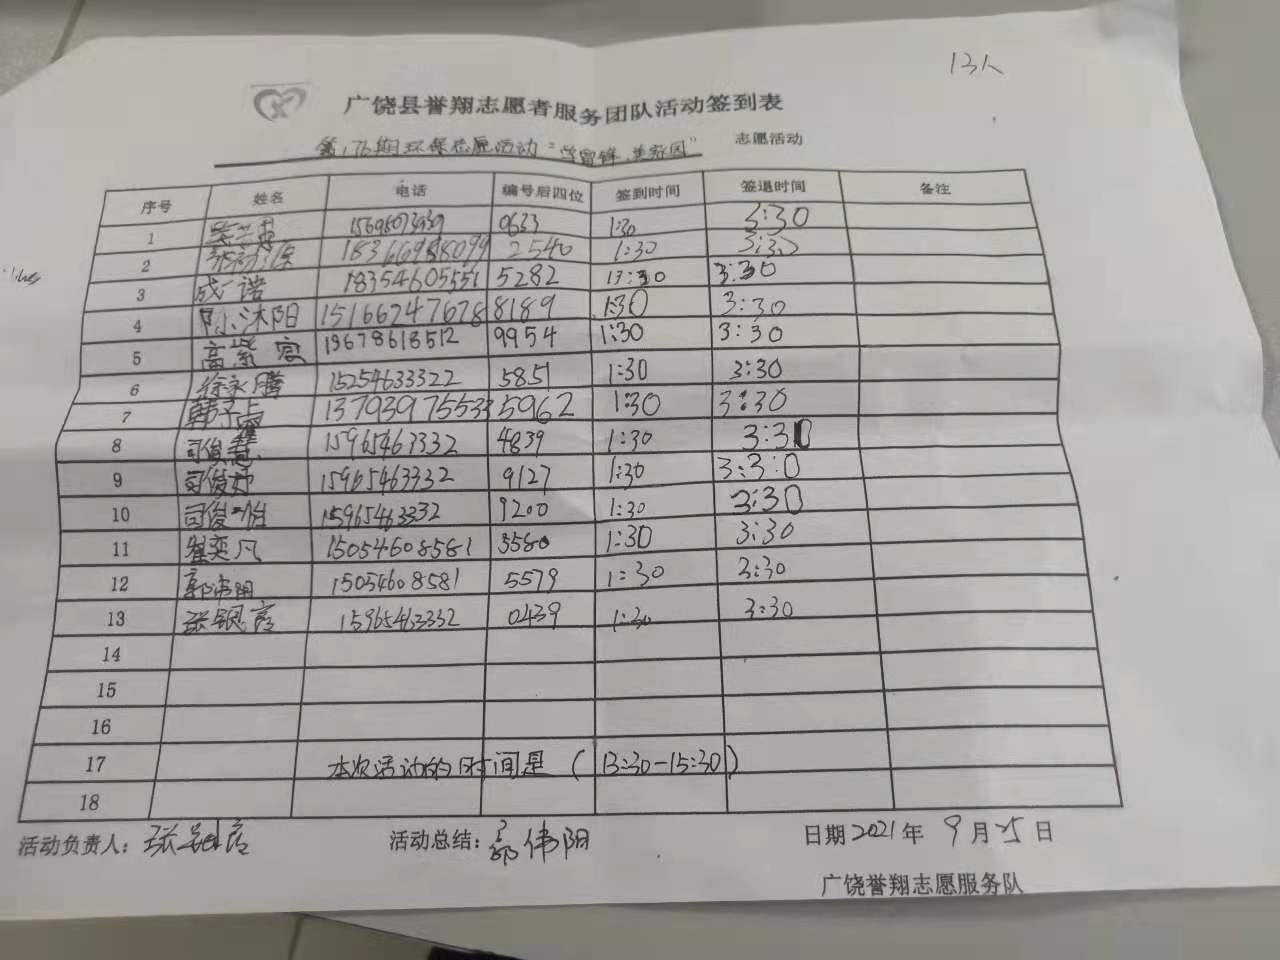 13人
广饶县誉翔志愿者服务团队活动签到表
第176期环保志愿活动"学雷锋,美家园" 志愿活动
序号 姓名 电话 编号后四位 签到时间 签退时间 备注
1 0633 1:30 3:30
2 18366988099 2540 1:30 3:30
3 成一诺 18354605551 5282 13:30 3:30
4 沐阳 15166247678 8189 1:30 3:30
5 高紫 13678618512 9954 1:30 3:30
6 徐永腾 15254633322 5851 1:30 3:30
7 韩子 13793975533 5962 1:30 3:30
8 司俊 15965463332 4839 1:30 3:30
9 司俊 15965463332 9127 1:30 3:3:0
10 司俊怡 15965463332 9200 1:30 3:30
11 翟奕凡 15054608581 3580 1:30 3:30
12 郭伟阳 15054608581 5579 1:30 3:30
13 张 15965463332 0439 1:30 3:30
14
15
16
17 本次活动的时间是(13:30-15:30)
18
活动负责人: 张 活动总结: 郭伟阳 日期2021年 9月25日
广饶誉翔志愿服务队